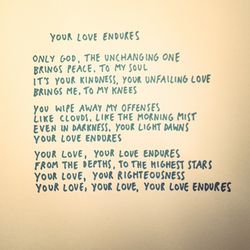 YOUR LOVE ENDURES
ONLY GOD, THE UNCHANGING ONE
BRINGS PEACE, TO MY SOUL
IT'S YOUR KINDNESS, YOUR UNFAILING LOVE
BRINGS ME, TO MY KNEES
YOU WIPE AWAY MY OFFENSES
LIKE CLOUDS, LIKE THE MORNING MIST
EVEN IN DARKNESS, YOUR LIGHT DAWNS
YOUR LOVE ENDURES
YOUR LOVE, YOUR LOVE ENDURES
FROM THE DEPTHS, TO THE HIGHEST STARS
YOUR LOVE, YOUR RIGHTEOUSNESS
YOUR LOVE, YOUR LOVE, YOUR LOVE ENDURES